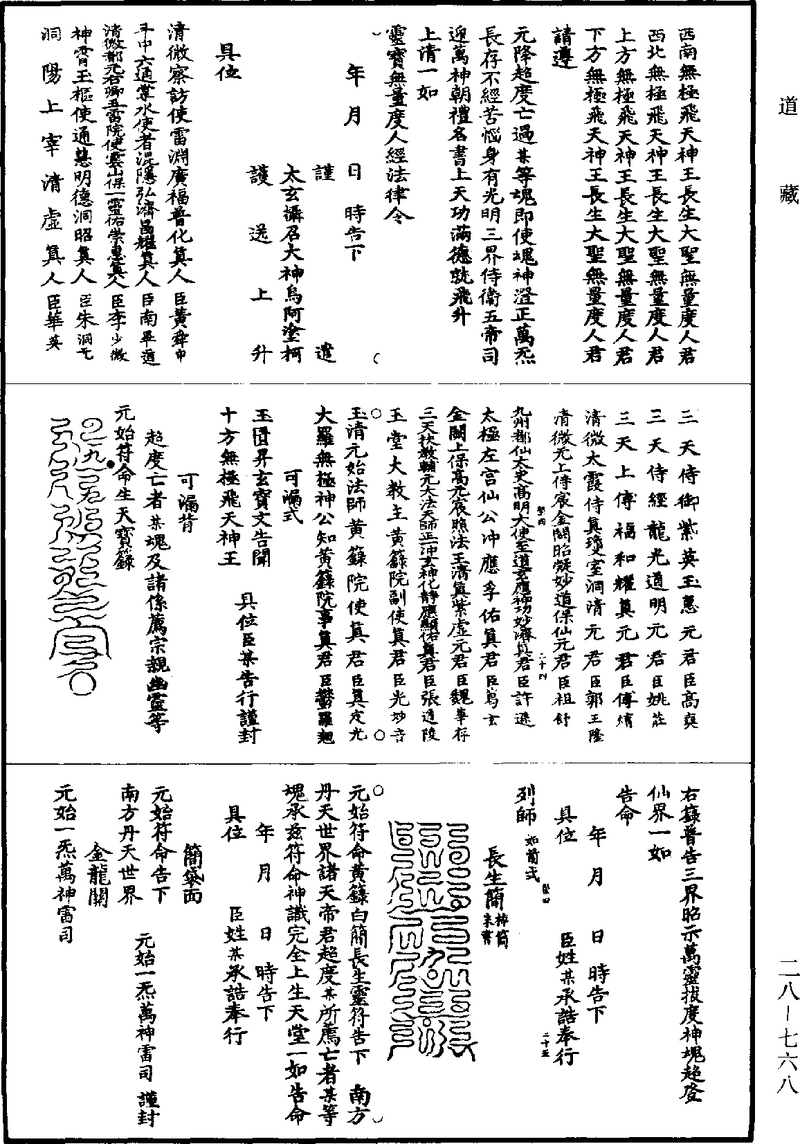 道藏
西南無極飛天神王長生大聖無量度人君
西北無極飛天神王長生大聖無量度人君
上方無極飛天神王長生大聖無量度人君
下方無極飛天神王長生大聖無量度人君
請遵
元降超度亡過某等魂即使魂神澄正萬炁
長存不經苦惱身有光明三界侍衛五帝司
迎萬神朝禮名書上天功滿德就飛升
上清一如
靈寶無量度人經法律令
年月日時告下
謹遣
太玄攝召大神烏阿塗柯
護送上升
具位
清微察訪使雷淵廣福普化真人臣黃舜申
斗中六通掌水使者混隱弘濟昌耀真人臣南畢道
清微都元右卿五雷院使雲山保一靈佑崇惠真人臣李少微
神霄玉樞使通慧明德洞昭真人臣朱洞元
洞陽上宰清虛真人臣華英
三天侍御紫英玉惠元君臣高奭
三天侍經龍光道明元君臣姚莊
三天上傅福和耀真元君臣傅熵
清微太霞侍真瓊室洞清元君臣郭玉隆
清微元上侍宸金闕昭凝妙道保仙元君臣祖舒
九州都仙太史高明大使至道玄應神功妙濟真君臣許遜
太極左宮仙公沖應孚佑真君臣葛玄
金闕上保高元宸照法王清真紫虛元君臣魏華存
三天扶教輔元大法天師正一沖玄神化靜應顯佑真君臣張道陵
玉堂大教主黃籙院副使真君臣光妙音
玉清元始法師黃籙院使真君臣真定光
大羅無極神公知黃籙院事真君臣鬱羅翹
可漏式
玉匱昇玄寶文告聞
具位臣某告行謹封
十方無極飛天神王
可漏背
超度亡者某魂及諸係薦宗親幽靈等
元始符命生天寶籙
右籙普告三界昭示萬靈拔度神魂超登
仙界一如
告命
年月日時告下
具位臣姓某承誥奉行
列師如前式
長生簡梓簡朱書
元始符命黃籙白簡長生靈符告下南方
丹天世界諸天帝君超度某所薦亡者某等
魂承茲符命神識完全上生天堂一如告命
年月日時告下
具位臣姓某承誥奉行
簡袋面
元始符命告下
元始一炁萬神雷司謹封
南方丹天世界
金龍關
元始一炁萬神雷司
二八－七六八